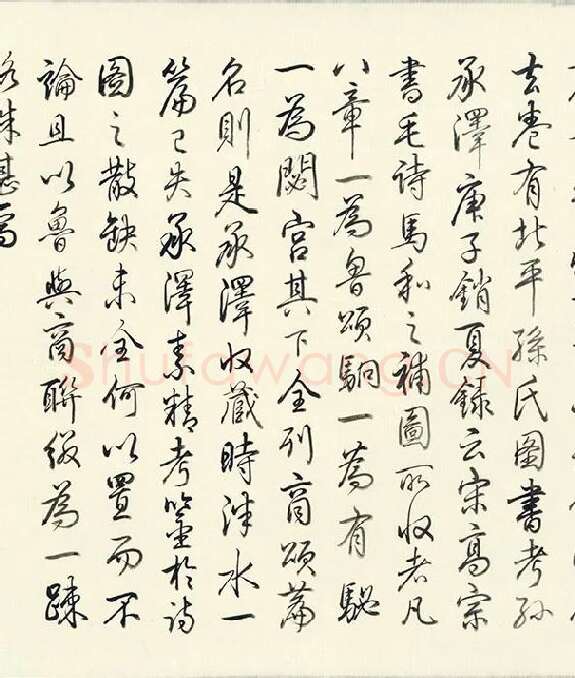 去卷有北平孫氏图書考孙
承澤庚子銷夏録云宋高宗
書毛诗馬和之補圖所收者凡
八章一為魯頌駉一為有駜
一為閟宫其下全列商頌篇
名則是承澤收藏時泮水一
篇已失承澤素精考鉴於诗
圖之散缺未全何以置而不
論且以魯與商聯缀為一踈
殊甚焉
Shufawang.CN